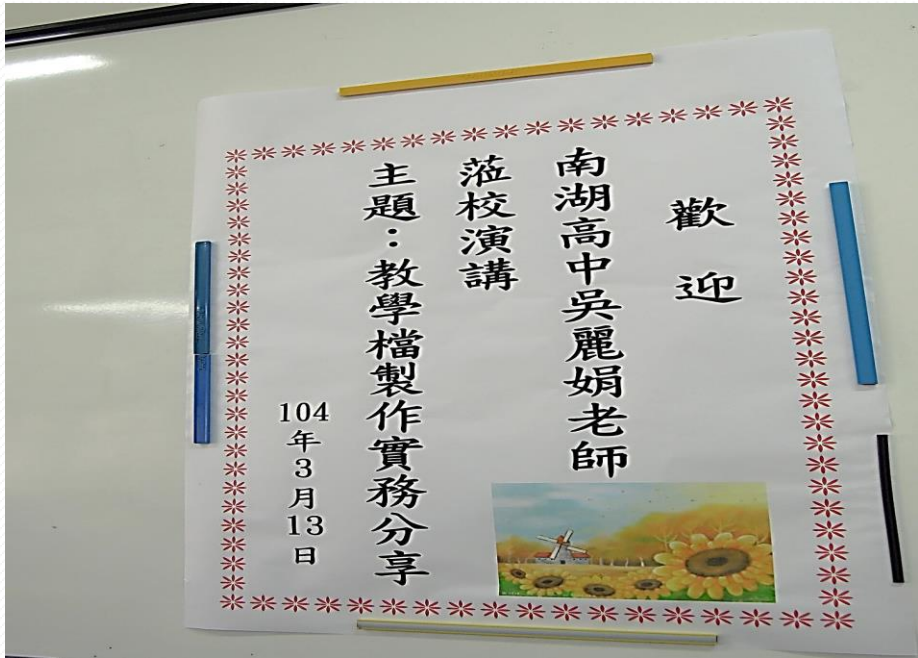 歡迎
南湖高中吳麗娟老師
蒞校演講
主題：教學檔製作實務分享
104年3月13日